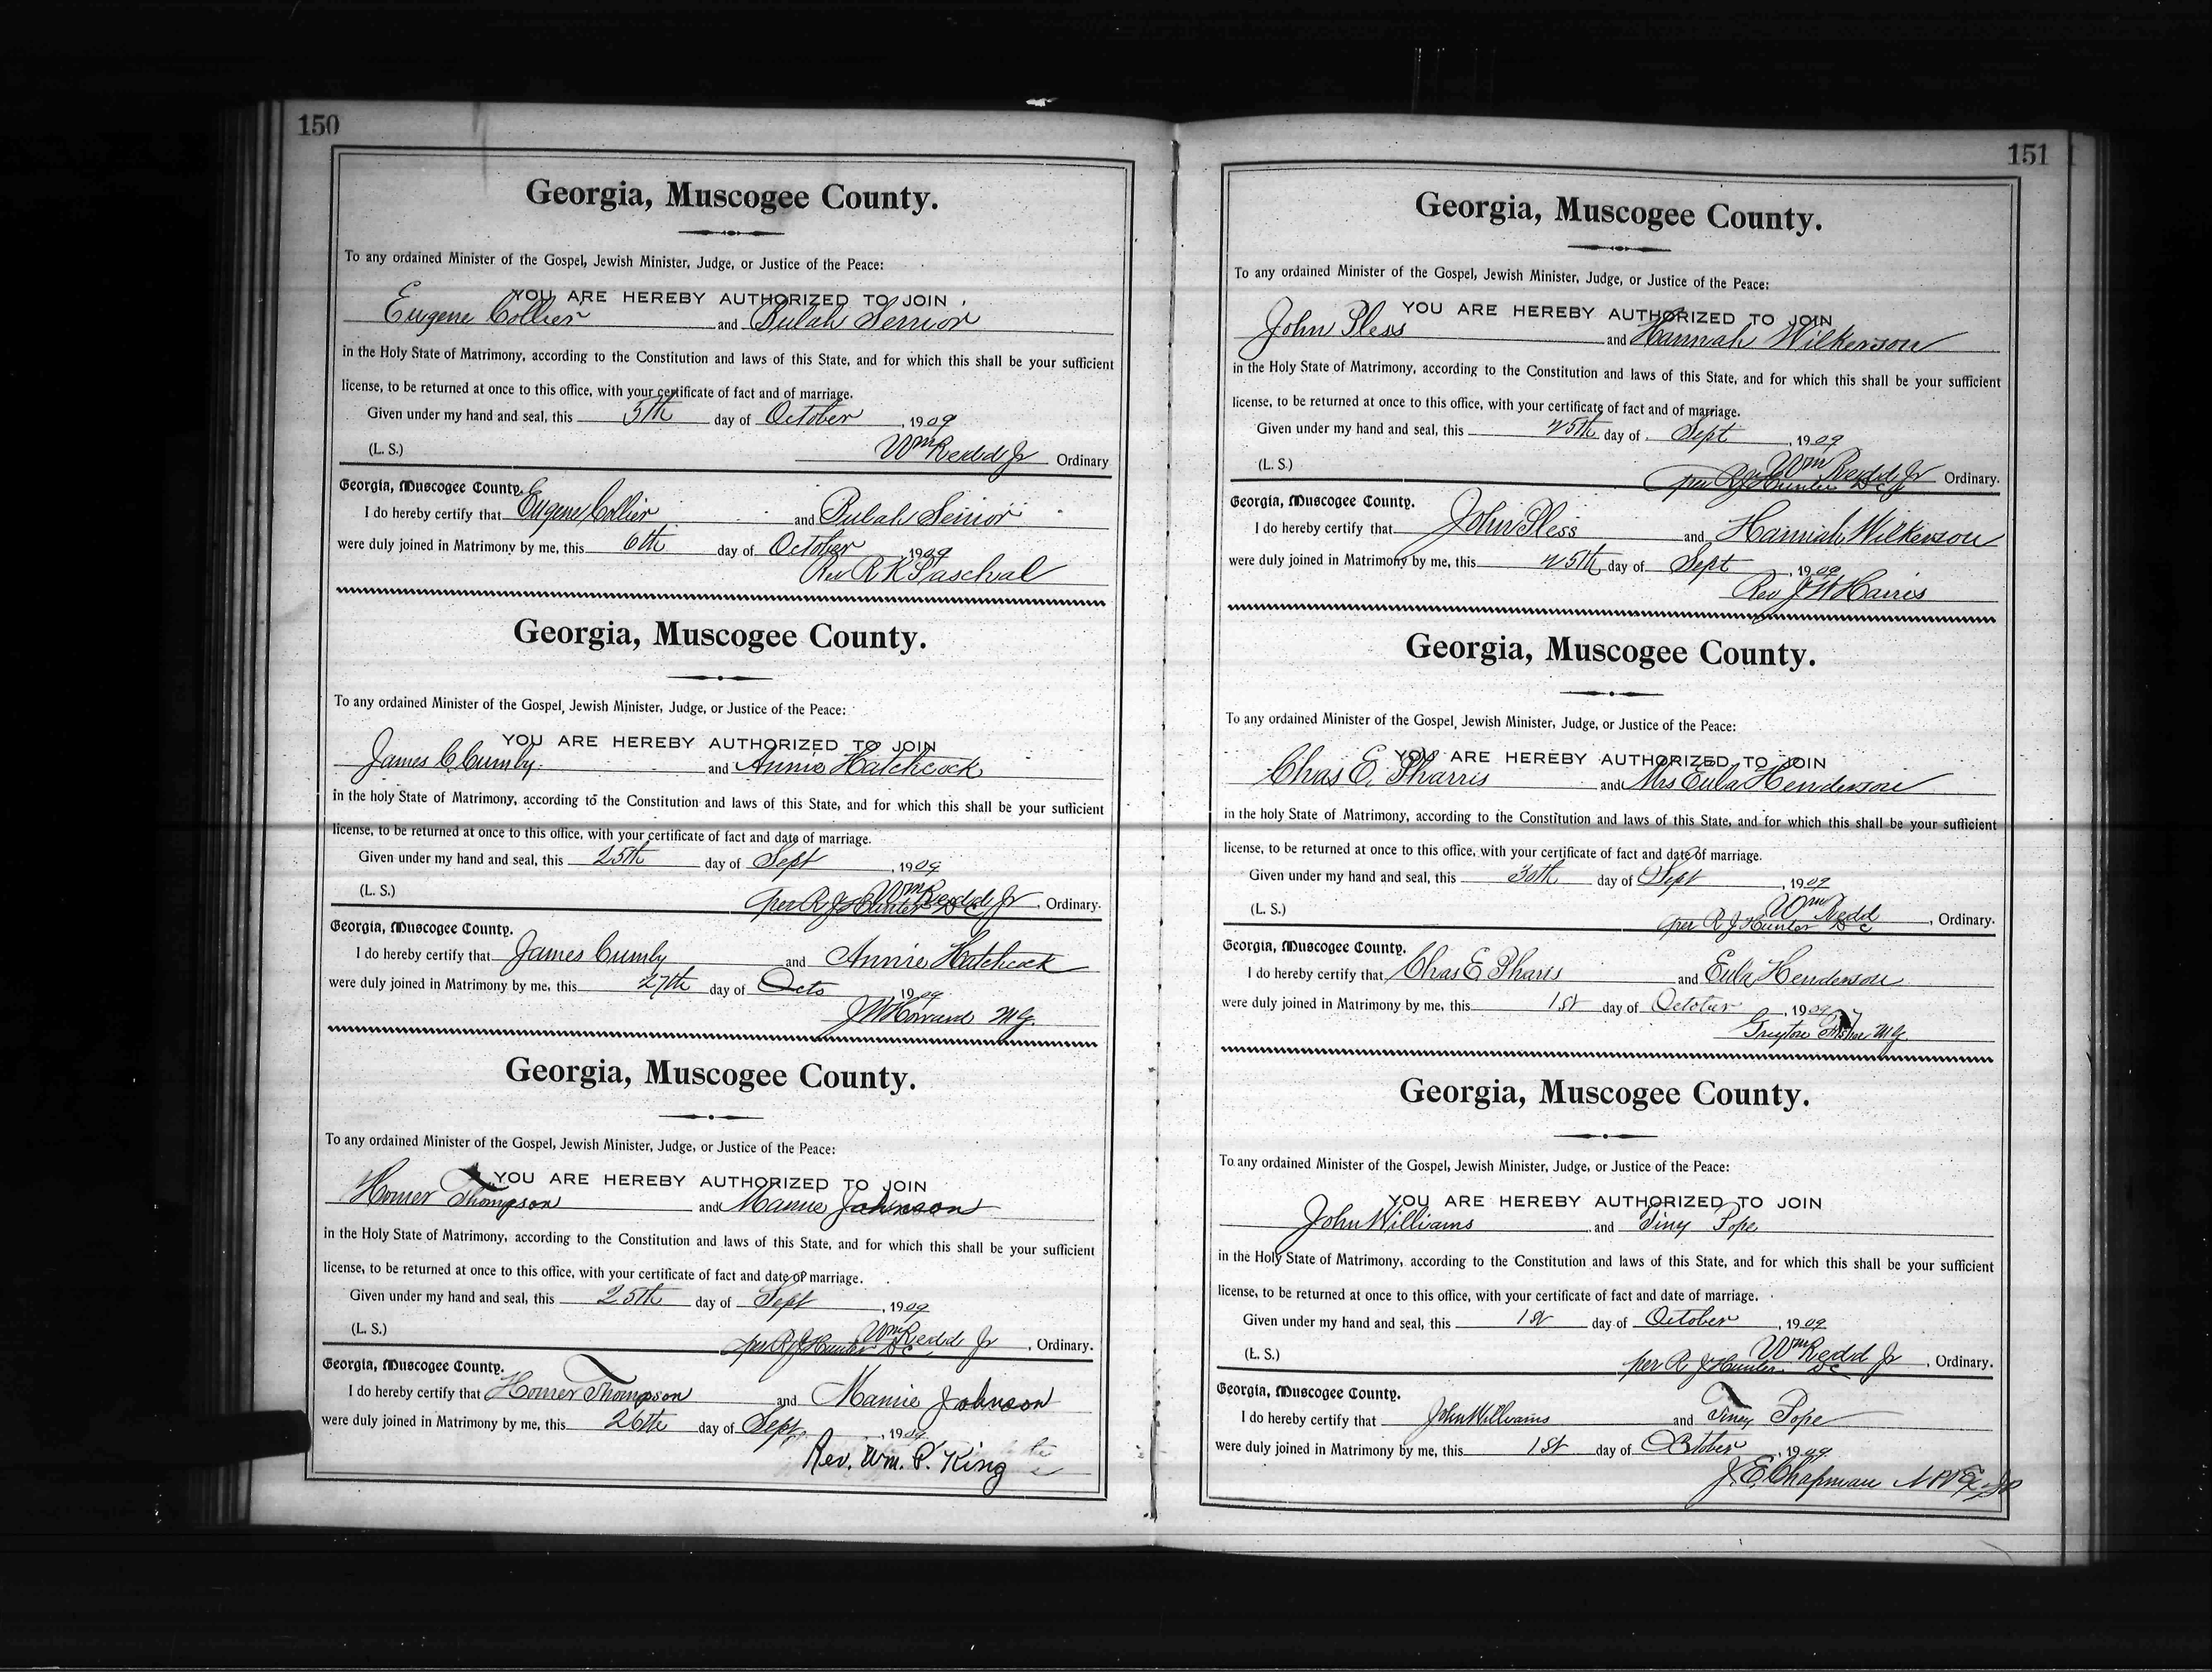 150
Georgia, Muscogee County.
To any ordained Minister of the Gospel, Jewish Minister, Judge, or Justice of the Peace:
YOU ARE HEREBY AUTHORIZED TO JOIN
Eugene Collier and Bulah Senior
in the Holy State of Matrimony, according to the Constitution and laws of this State, and for which this shall be your sufficient
license, to be returned at once to this office, with your certificate of fact and of marriage.
Given under my hand and seal, this 5th day of October, 1909
(L. S.) Wm Redd Jr Ordinary
Georgia, Muscogee County.
I do hereby certify that Eugene Collier and Bulah Senior
were duly joined in Matrimony by me, this 6th day of October 1909
Rev R K Paschal
Georgia, Muscogee County.
To any ordained Minister of the Gospel, Jewish Minister, Judge, or Justice of the Peace:
YOU ARE HEREBY AUTHORIZED TO JOIN
James C Cumby and Annie Hatchcock
in the holy State of Matrimony, according to the Constitution and laws of this State, and for which this shall be your sufficient
license, to be returned at once to this office, with your certificate of fact and date of marriage.
Given under my hand and seal, this 25th day of Sept, 1909
(L. S.) Wm Redd Jr, Ordinary.
per R J Hunter D C
Georgia, Muscogee County.
I do hereby certify that James Cumby and Annie Hatchcock
were duly joined in Matrimony by me, this 27th day of Octo 1909
J W Howard M G.
Georgia, Muscogee County.
To any ordained Minister of the Gospel, Jewish Minister, Judge, or Justice of the Peace:
YOU ARE HEREBY AUTHORIZED TO JOIN
Homer Thompson and Mamie Johnson
in the Holy State of Matrimony, according to the Constitution and laws of this State, and for which this shall be your sufficient
license, to be returned at once to this office, with your certificate of fact and date of marriage.
Given under my hand and seal, this 25th day of Sept, 1909
(L. S.) Wm Redd Jr, Ordinary.
per R J Hunter D C
Georgia, Muscogee County.
I do hereby certify that Homer Thompson and Mamie Johnson
were duly joined in Matrimony by me, this 26th day of Sept, 1909
Rev. Wm. P. King
151
Georgia, Muscogee County.
To any ordained Minister of the Gospel, Jewish Minister, Judge, or Justice of the Peace:
YOU ARE HEREBY AUTHORIZED TO JOIN
John Pless and Hannah Wilkerson
in the Holy State of Matrimony, according to the Constitution and laws of this State, and for which this shall be your sufficient
license, to be returned at once to this office, with your certificate of fact and of marriage.
Given under my hand and seal, this 25th day of Sept, 1909
(L. S.) Wm Redd Jr, Ordinary.
per R J Hunter D C
Georgia, Muscogee County.
I do hereby certify that John Pless and Hannah Wilkerson
were duly joined in Matrimony by me, this 25th day of Sept, 1909
Rev J W Harris
Georgia, Muscogee County.
To any ordained Minister of the Gospel, Jewish Minister, Judge, or Justice of the Peace:
YOU ARE HEREBY AUTHORIZED TO JOIN
Chas E. Pharris and Mrs Eula Henderson
in the holy State of Matrimony, according to the Constitution and laws of this State, and for which this shall be your sufficient
license, to be returned at once to this office, with your certificate of fact and date of marriage.
Given under my hand and seal, this 30th day of Sept, 1909
(L. S.) Wm Redd, Ordinary.
per R J Hunter D C
Georgia, Muscogee County.
I do hereby certify that Chas E Pharis and Eula Henderson
were duly joined in Matrimony by me, this 1st day of October, 1909
M G
Georgia, Muscogee County.
To any ordained Minister of the Gospel, Jewish Minister, Judge, or Justice of the Peace:
YOU ARE HEREBY AUTHORIZED TO JOIN
John Williams and Tiny Pope
in the Holy State of Matrimony, according to the Constitution and laws of this State, and for which this shall be your sufficient
license, to be returned at once to this office, with your certificate of fact and date of marriage.
Given under my hand and seal, this 1st day of October, 1909
(L. S.) Wm Redd Jr, Ordinary.
per R J Hunter D C
Georgia, Muscogee County.
I do hereby certify that John Williams and Tiney Pope
were duly joined in Matrimony by me, this 1st day of October, 1909
J. E. Chapman